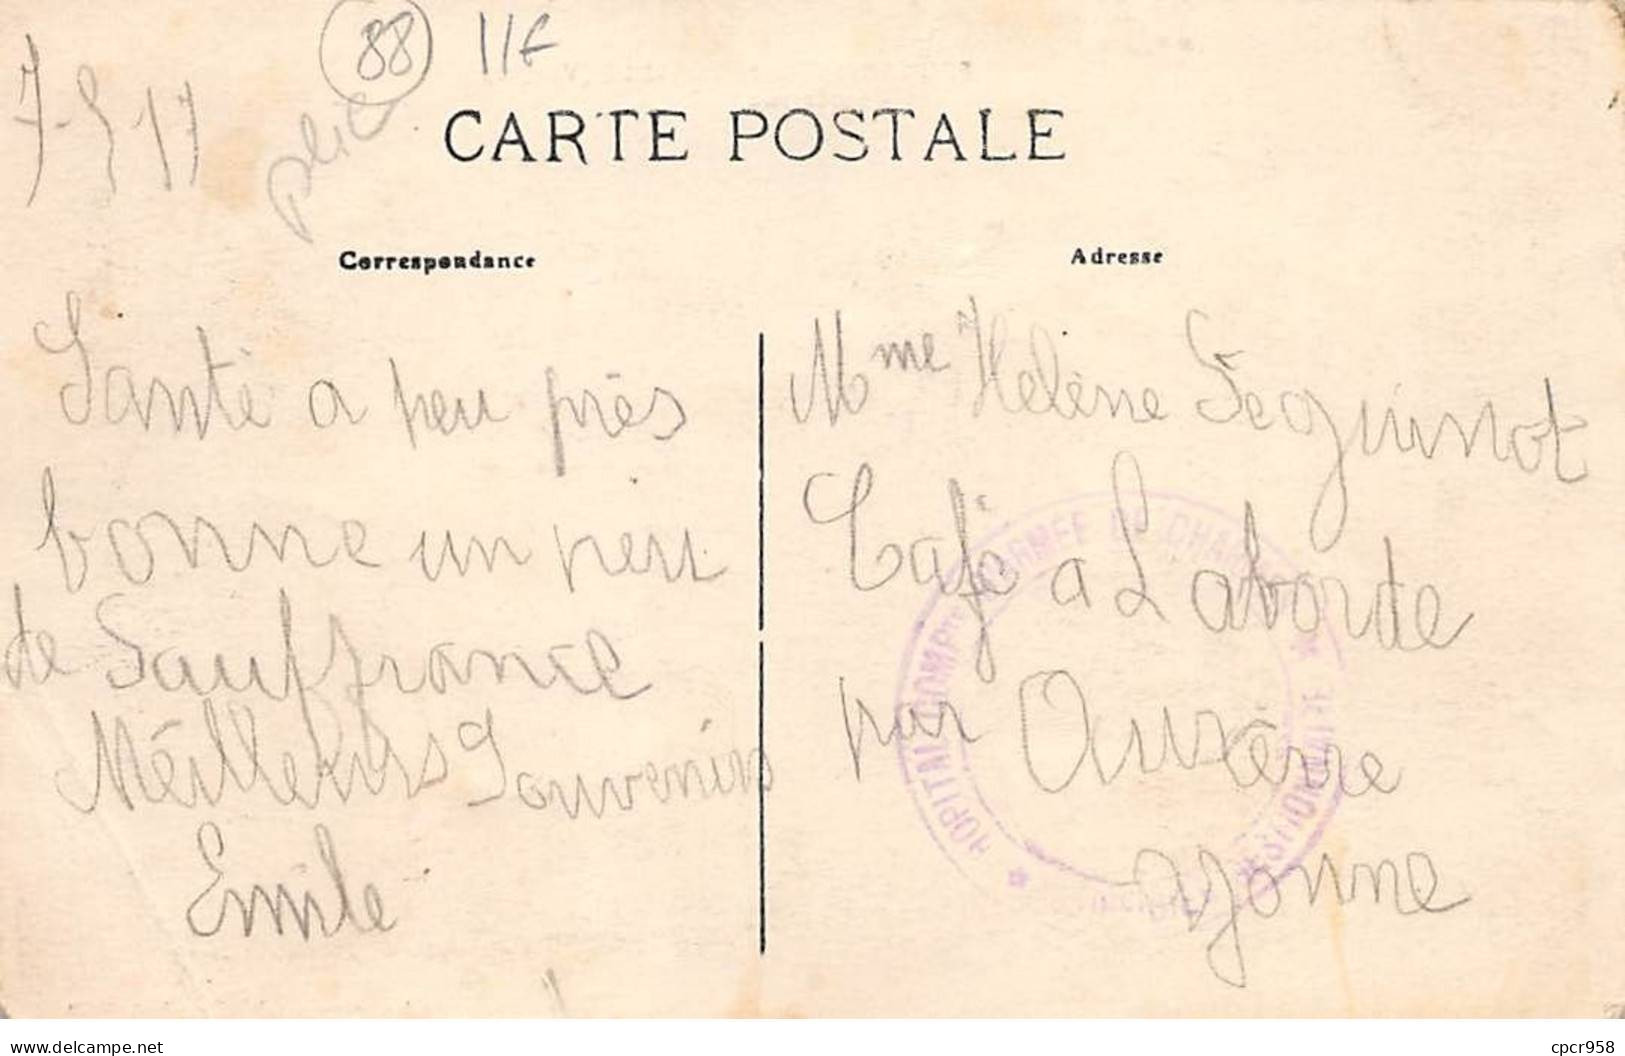 7-5 17
88
11F
plica
CARTE POSTALE
Correspondance
Santé a peu près
bonne un peu
de Sauffrance
Méilleurs Souvenirs
Emile
Adresse
Mme Helène Seguinot
Café a Laborde
par Auxèrre
yonne
HOPITAL COMPre D'ARMEE DU
GESTIONNAIRE
www.delcampe.net
cpcr958